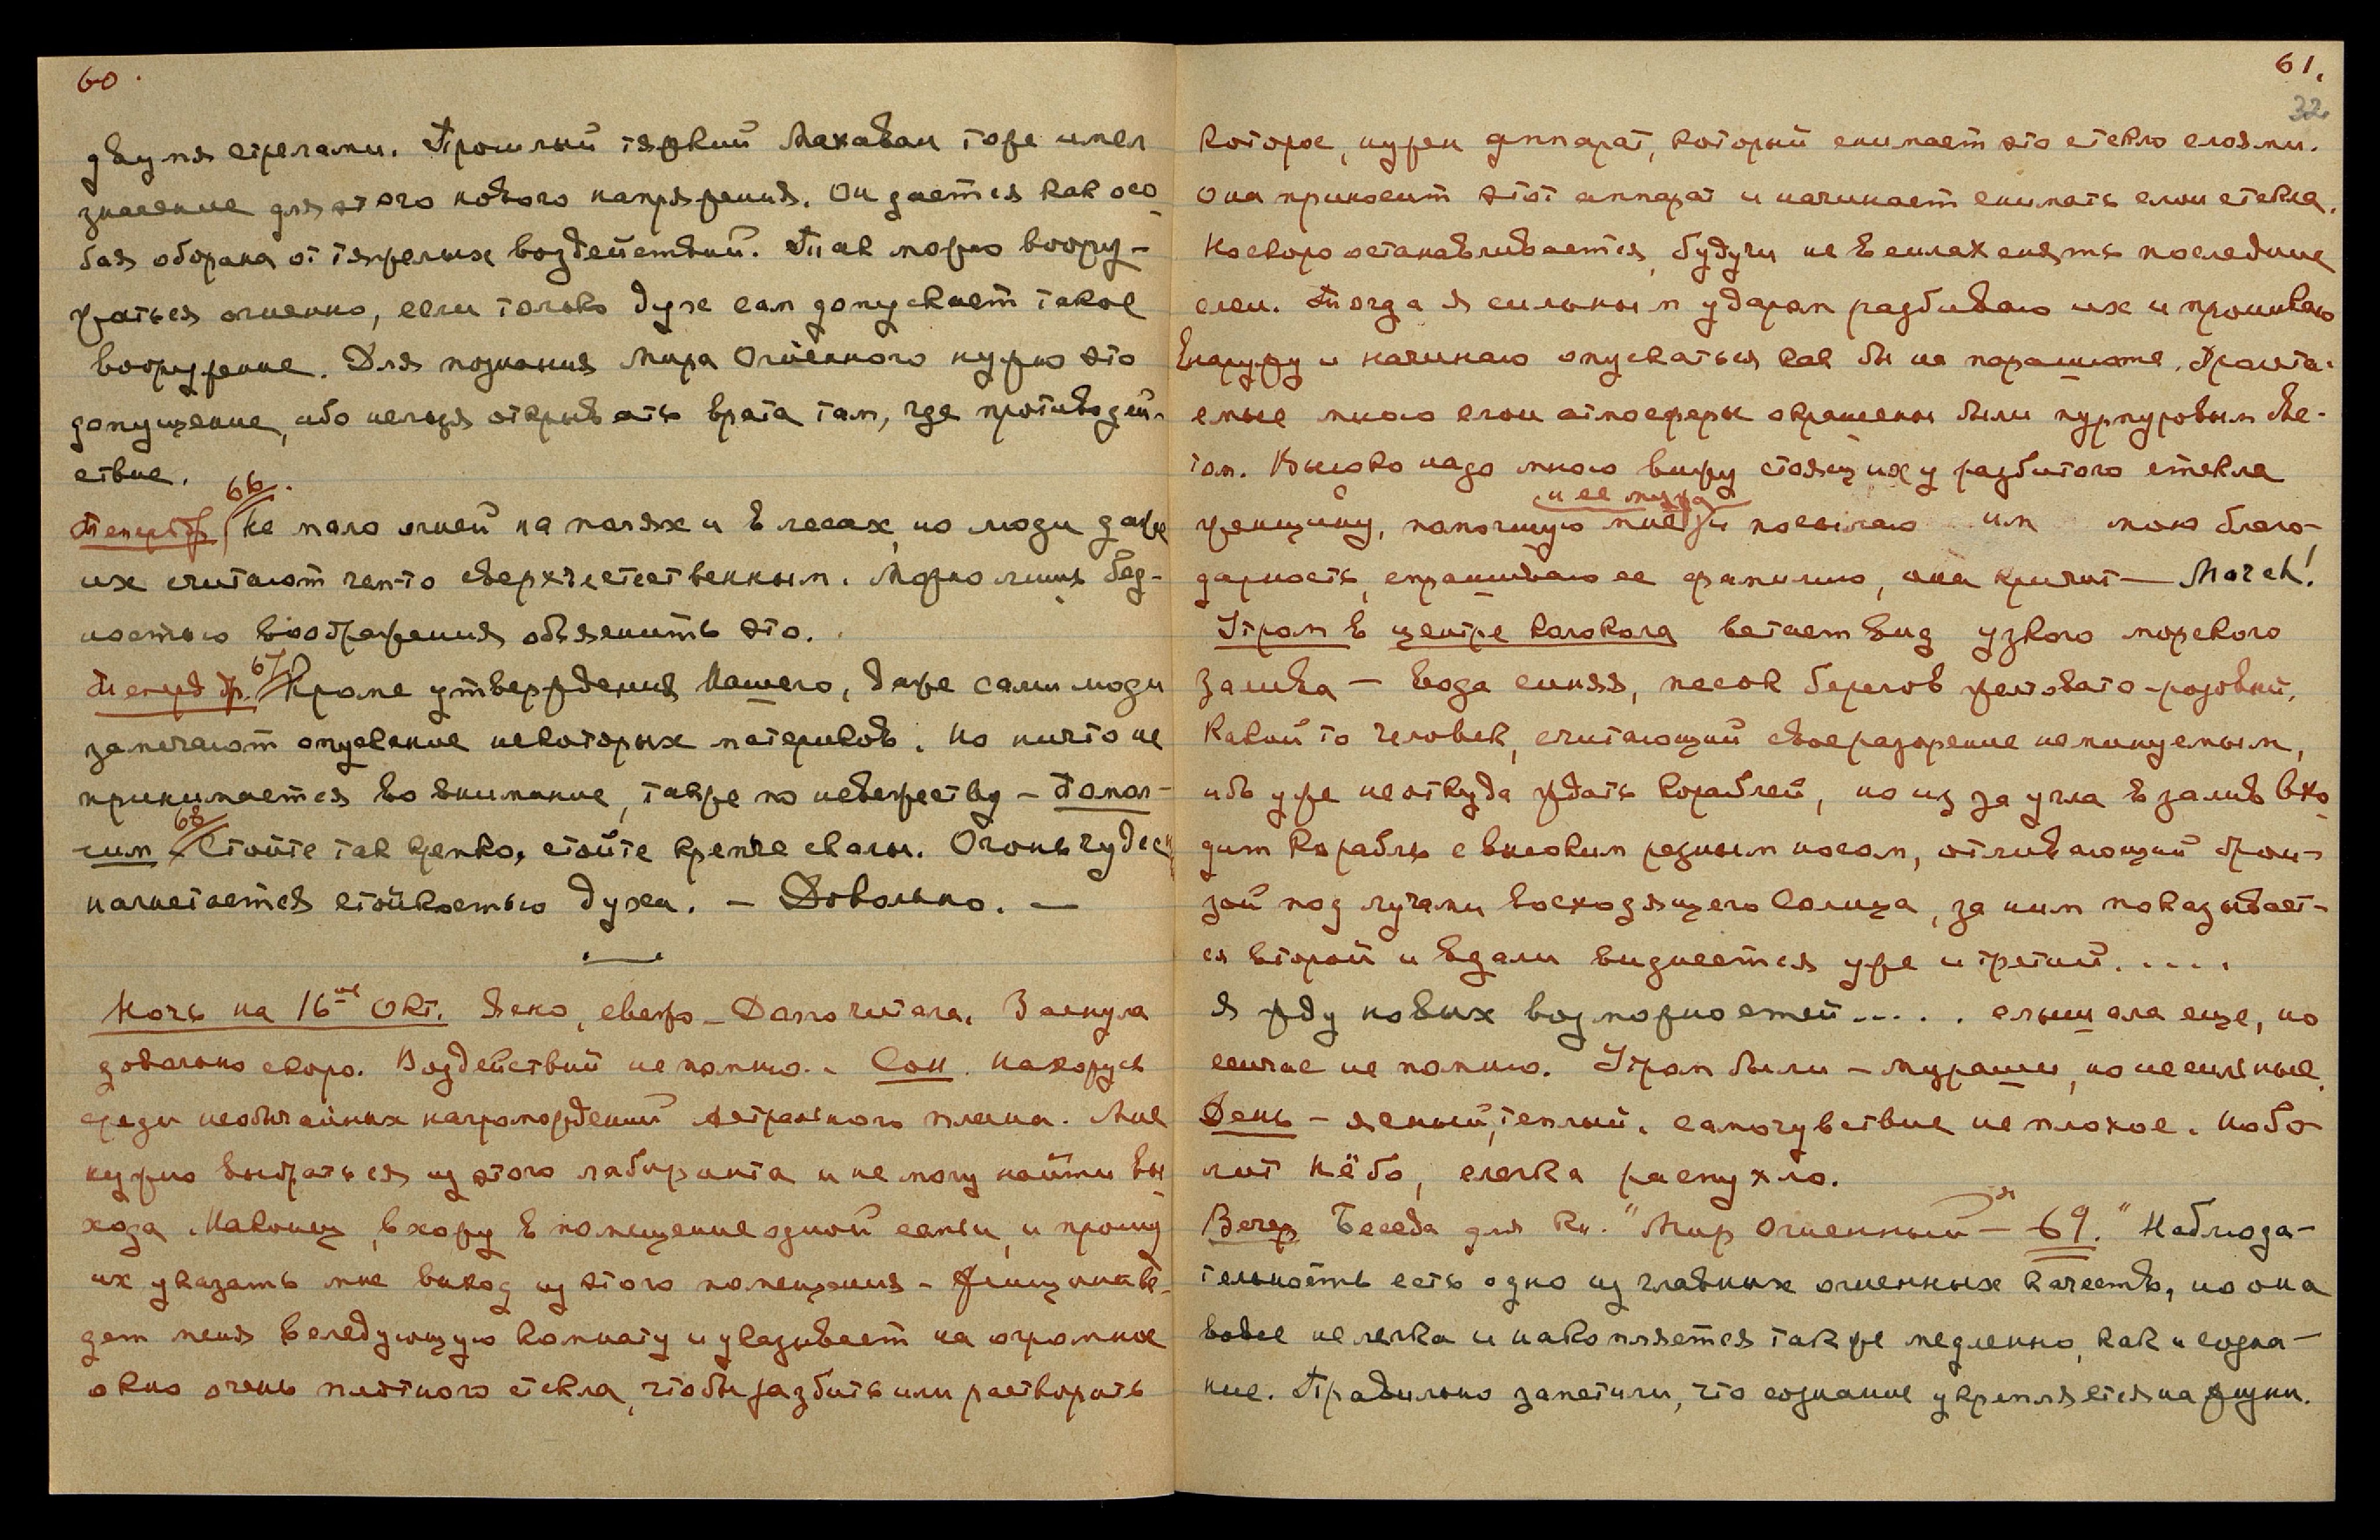 60.
двумя стрелами. Прошлый тяжкий Махаван тоже имел
значение для этого нового напряжения. Он дается как осо-
бая оборона от тяжелых воздействий. Так можно воору-
жаться огненно, если только дух сам допускает такое
вооружение. Для познания Мира Огненного нужно это
допущение, ибо нельзя открывать врата там, где противодей-
ствие.
66.
Теперь др. Не мало огней на полях и в лесах, но люди даже
их считают чем-то сверхъестественным. Можно лишь бед-
ностью воображения объяснить это.
67
Теперь др. Кроме утверждения Нашего, даже сами люди
замечают опускание некоторых материков. Но ничто не
принимается во внимание, также по невежеству – Помол-
68
чим – Стойте так крепко, стойте крепче скалы. Огонь чудесн
нагнетается стойкостью духа. – Довольно. –
Ночь на 16ое Окт. Ясно, свежо – Долго читала. Заснула
довольно скоро. Воздействий не помню. – Сон. Нахожусь
среди необычайных нагромождений астрального плана. Мне
нужно выбраться из этого лабиринта и не могу найти вы-
хода. Наконец, вхожу в помещение одной семьи, и прошу
их указать мне выход из этого помещения – Женщина ве-
дет меня в следующую комнату и указывает на огромное
окно очень плотного стекла, чтобы разбить или растворить
61.
32
которое, нужен аппарат, который снимает это стекло слоями.
Она приносит этот аппарат и начинает снимать слои стекла.
Но скоро останавливается, будучи не в силах снять последние
слои. Тогда я сильным ударом разбиваю их и проникаю
наружу и начинаю опускаться как бы на парашюте. Пролета-
емые мною слои атмосферы окрашены были пурпуровым све-
том. Высоко надо мною вижу стоящих у разбитого стекла
и ее мужа
женщину, помогшую мне и посылаю им мою благо-
дарность, спрашиваю ее фамилию, она кричит – March!
Утром в центре колокола встает вид узкого морского
залива – вода синяя, песок берегов желтовато-розовый,
Какой то человек, считающий свое разорение неминуемым,
ибо уже неоткуда ждать кораблей, но из за угла в залив вхо-
дит корабль с высоким резным носом, отливающий брон-
зой под лучами восходящего Солнца, за ним показывает-
ся второй и вдали виднеется уже и третий. . . . .
Я жду новых возможностей . . . . . слышала еще, но
сейчас не помню. Утром были – мураши, но не сильные.
День – ясный, теплый. самочувствие не плохое. Но бо-
лит нёбо, слегка распухло.
Вечер Беседа для Кн. "Мир Огненный" – 69. "Наблюда-
тельность есть одно из главных огненных качеств, но она
вовсе не легка и накопляется так же медленно, как и созна-
ние. Правильно заметили, что сознание укрепляется на жизни.